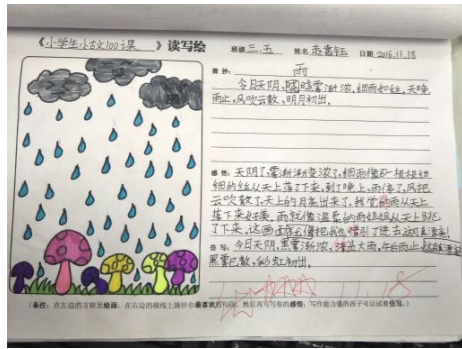 《小学生小古文100课》读写绘 班级 三.五 姓名 赵喜钰 日期 2016.11.18
摘抄： 雨
今日天阴,晓雾渐浓,细雨如丝,天晚
雨止,风吹云散,明月初出。
感悟：天阴了,雾渐渐变浓了,细雨像一根根细
细的丝从天上落了下来,到了晚上,雨停了,风把
云吹散了,天上的月亮出来了,我觉的雨从天上
落下来好美,雨就像温柔的雨姐姐从天上跳
了下来,这画面
仿写：今日天阴,黑雾渐浓,大雨,午后雨止,
黑雾已散,彩虹初出。
11.18
(备注：在左边的方框里绘画，在右边的横线上摘抄你最喜欢的句段，然后再写写你的感悟，写作能力强的孩子可以试着仿写。)